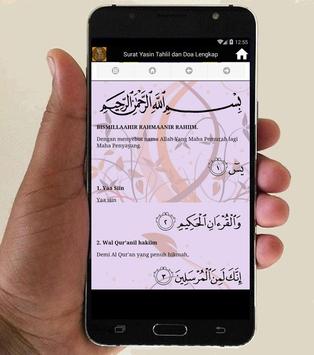 12:55
Surat Yasin Tahlil dan Doa Lengkap
بِسْمِ ٱللَّهِ ٱلرَّحْمَٰنِ ٱلرَّحِيمِ
BISMILLAAHIR RAHMAANIR RAHIIM.
Dengan menyebut nama Allah Yang Maha Pemurah lagi
Maha Penyayang.
يسٓ ۝١
1. Yaa siin
Yaa siin
وَٱلْقُرْءَانِ ٱلْحَكِيمِ ۝٢
2. Wal Qur'anil hakiim
Demi Al Qur'an yang penuh hikmah,
إِنَّكَ لَمِنَ ٱلْمُرْسَلِينَ ۝٣